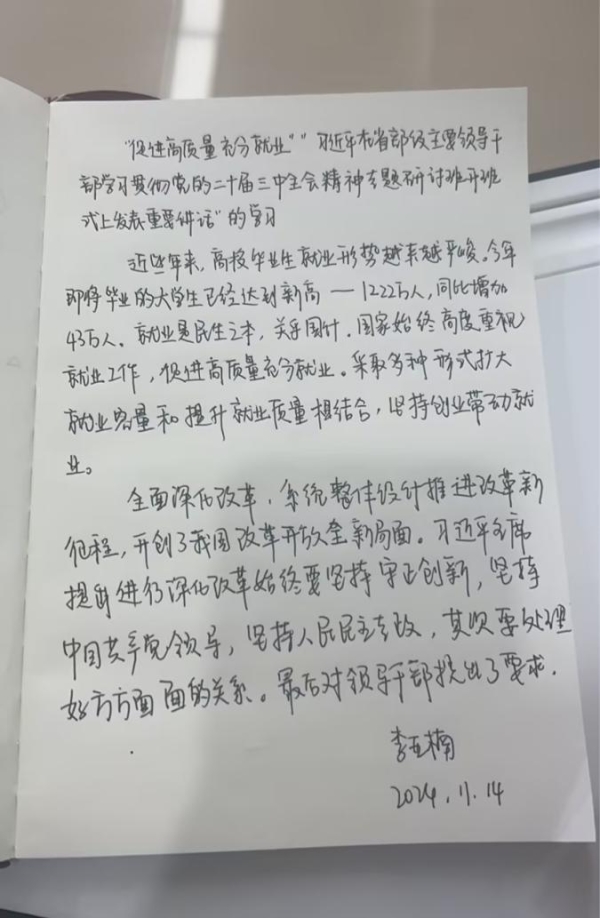 “促进高质量充分就业”“习近平在省部级主要领导干
部学习贯彻党的二十届三中全会精神专题研讨班开班
式上发表重要讲话”的学习
近些年来，高校毕业生就业形势越来越严峻。今年
即将毕业的大学生已经达到新高—1222万人，同比增加
43万人。就业是民生之本，关乎国计。国家始终高度重视
就业工作，促进高质量充分就业。采取多种形式扩大
就业容量和提升就业质量相结合，坚持创业带动就
业。
全面深化改革，系统整体设计推进改革新
征程，开创了我国改革开放全新局面。习近平主席
提出进行深化改革始终要坚持守正创新，坚持
中国共产党领导，坚持人民民主专政，其次要处理
好方方面面的关系。最后对领导干部提出了要求.
李亚楠
2024.11.14